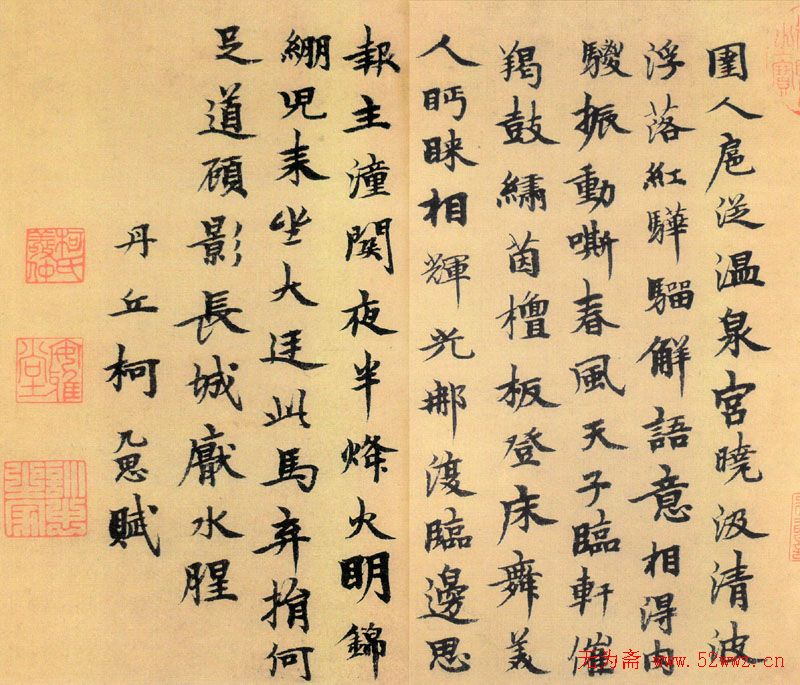 圉人扈從温泉宮曉汲清波
浮落紅驊騮解語意相得肉
騣振動嘶春風天子臨軒催
羯鼓繡茵檀板登床舞美
人眄睞相輝光那復臨邊思
報主潼関夜半烽火明錦
綳兒来坐大廷此馬弃捐何
足道顧影長城厭水腥
丹丘柯九思賦
柯氏敬仲
无为斋 www.52wwz.cn